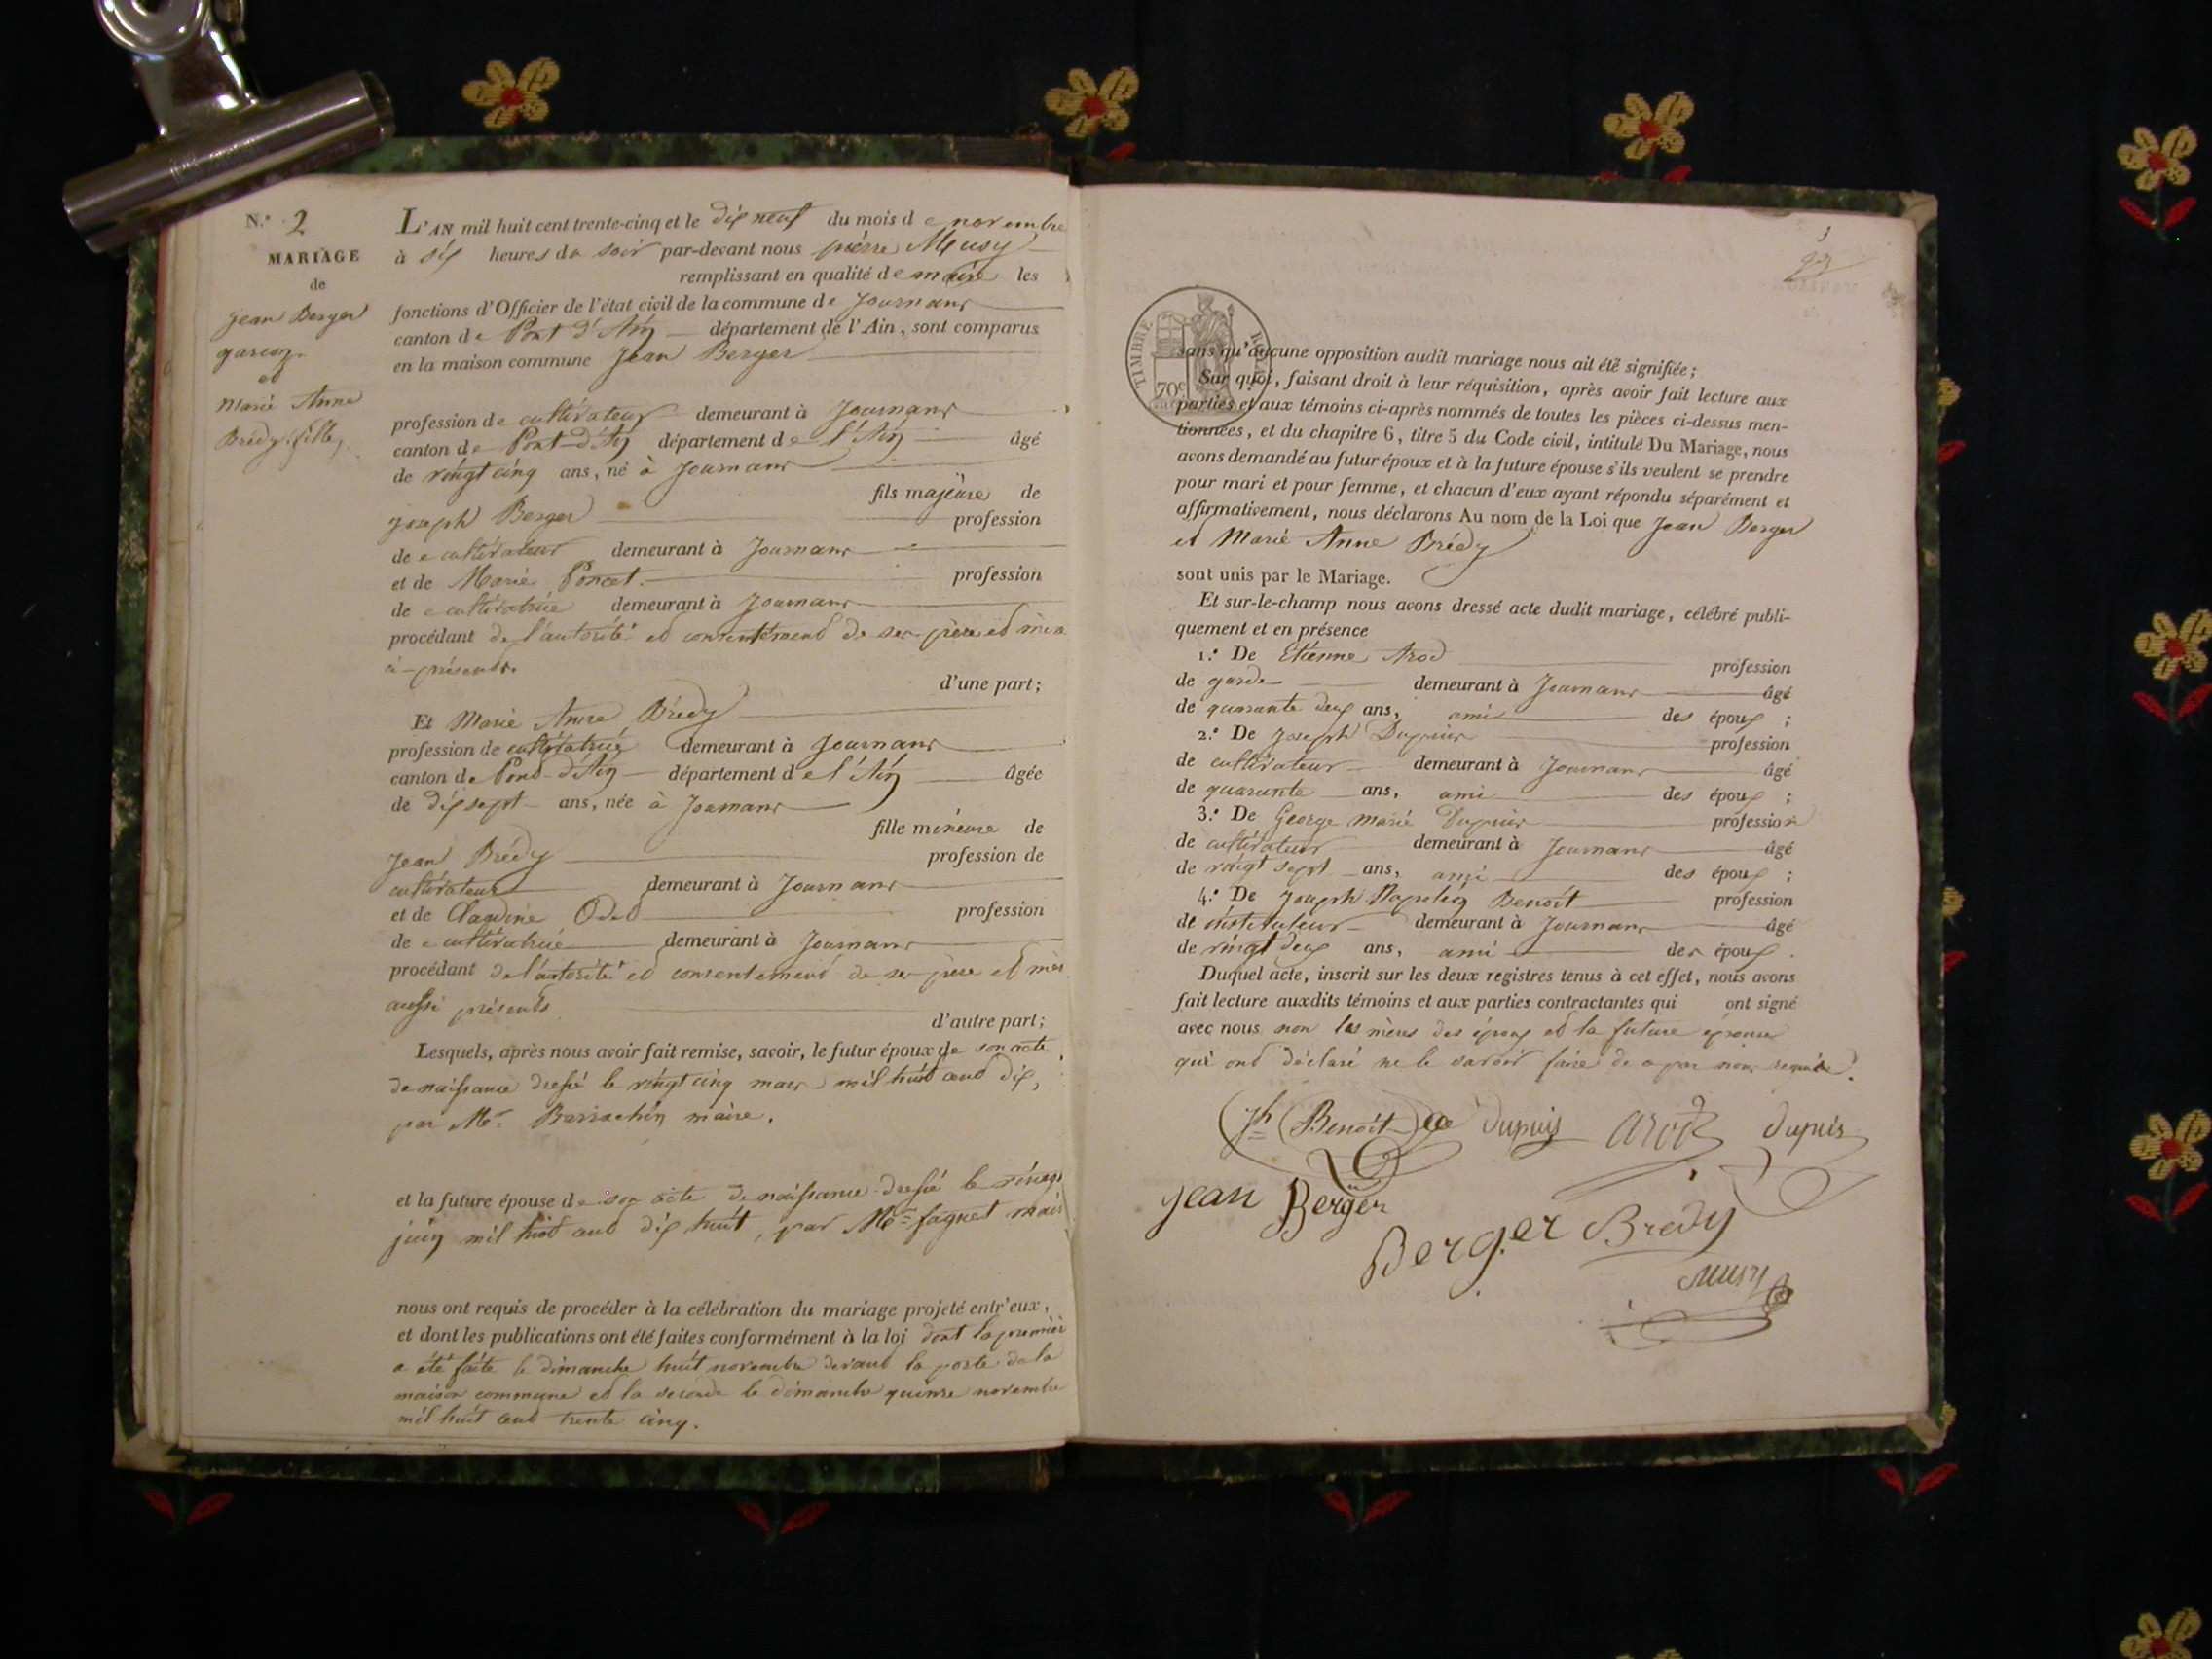 N.° 2
MARIAGE
de
Jean Berger
garçon
et
Marie Anne
Brédy fille
L'AN mil huit cent trente-cinq et le dix neuf du mois de novembre
à six heures du soir par-devant nous pierre Musy
remplissant en qualité de maire les
fonctions d'Officier de l'état civil de la commune de Journans
canton de Pont d'Ain département de l'Ain, sont comparus
en la maison commune Jean Berger
profession de cultivateur demeurant à Journans
canton de Pont-d'Ain département de l'Ain âgé
de vingt cinq ans, né à Journans
fils majeure de
joseph Berger profession
de cultivateur demeurant à Journans
et de Marie Poncet. profession
de cultivatrice demeurant à Journans
procédant de l'autorité et consentement de ses père et mère
ci-présents.
d'une part;
Et Marie Anne Brédy
profession de cultivatrice demeurant à Journans
canton de Pont-d'Ain département de l'Ain âgée
de dix sept ans, née à Journans
fille mineure de
Jean Brédy profession de
cultivateur demeurant à Journans
et de Claudine Odet profession
de cultivatrice demeurant à Journans
procédant de l'autorité et consentement de ses père et mère
aussi présents
d'autre part;
Lesquels, après nous avoir fait remise, savoir, le futur époux de son acte
de naissance dressé le vingt cinq mars mil huit cent dix,
par Mr. Barrachin maire.
et la future épouse de son acte de naissance dressé le vingt
juin mil huit cent dix huit, par Mr faguet maire
nous ont requis de procéder à la célébration du mariage projeté entr'eux,
et dont les publications ont été faites conformément à la loi dont la premièr
a été faite le dimanche huit novembre devant la porte de la
maison commune et la seconde le dimanche quinze novembre
mil huit cent trente cinq.
TIMBRE ROYAL
70c
sans qu'aucune opposition audit mariage nous ait été signifiée;
Sur quoi, faisant droit à leur réquisition, après avoir fait lecture aux
parties et aux témoins ci-après nommés de toutes les pièces ci-dessus men-
tionnées, et du chapitre 6, titre 5 du Code civil, intitulé Du Mariage, nous
avons demandé au futur époux et à la future épouse s'ils veulent se prendre
pour mari et pour femme, et chacun d'eux ayant répondu séparément et
affirmativement, nous déclarons Au nom de la Loi que Jean Berger
et Marie Anne Brédy
sont unis par le Mariage.
Et sur-le-champ nous avons dressé acte dudit mariage, célébré publi-
quement et en présence
1.° De Etienne Arod profession
de garde demeurant à Journans âgé
de quarante deux ans, ami des époux ;
2.° De Joseph Dupuis profession
de cultivateur demeurant à Journans âgé
de quarante ans, ami des époux ;
3.° De George marie Dupuis profession
de cultivateur demeurant à Journans âgé
de vingt sept ans, ami des époux ;
4.° De Joseph Napoléon Benoît profession
de instituteur demeurant à Journans âgé
de vingt deux ans, ami des époux.
Duquel acte, inscrit sur les deux registres tenus à cet effet, nous avons
fait lecture auxdits témoins et aux parties contractantes qui ont signé
avec nous non les mères des époux et la future épouse
qui ont déclaré ne le savoir faire de ce par nous requise.
Jh Benoît Dupuis Arod Dupuis
Jean Berger
Berger Bredy
Musy